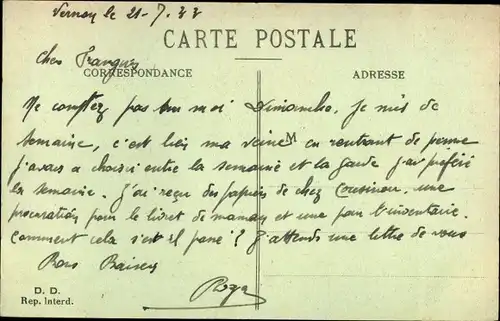 Vernon le 21-7-33
CARTE POSTALE
Chers
CORRESPONDANCE
ADRESSE
Ne comptez pas sur moi Dimanche. Je suis de
semaine, c'est bien ma veine M en rentrant de perme
j'avais a choisir entre la semaine et la garde j'ai préféré
la semaine. J'ai reçu des papiers de chez Cousinou, une
procuration pour le livret de maman et une pour l'inventaire.
Comment cela s'est il passé ? J'attends une lettre de vous
Bons Baisers
Roger
D. D.
Rep. Interd.